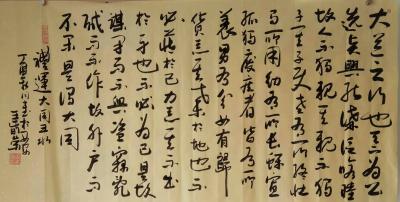 大道之行也天下為公
選賢與能講信修睦
故人不獨親其親不獨
子其子使老有所終壯
有所用幼有所長矜寡
孤獨廢疾者皆有所
養男有分女有歸
貨惡其棄於地也不
必藏於己力惡其不出
於身也不必為己是故
謀閉而不興盜竊亂
賊而不作故外戶而
不閉是謂大同
禮運大同
丁酉